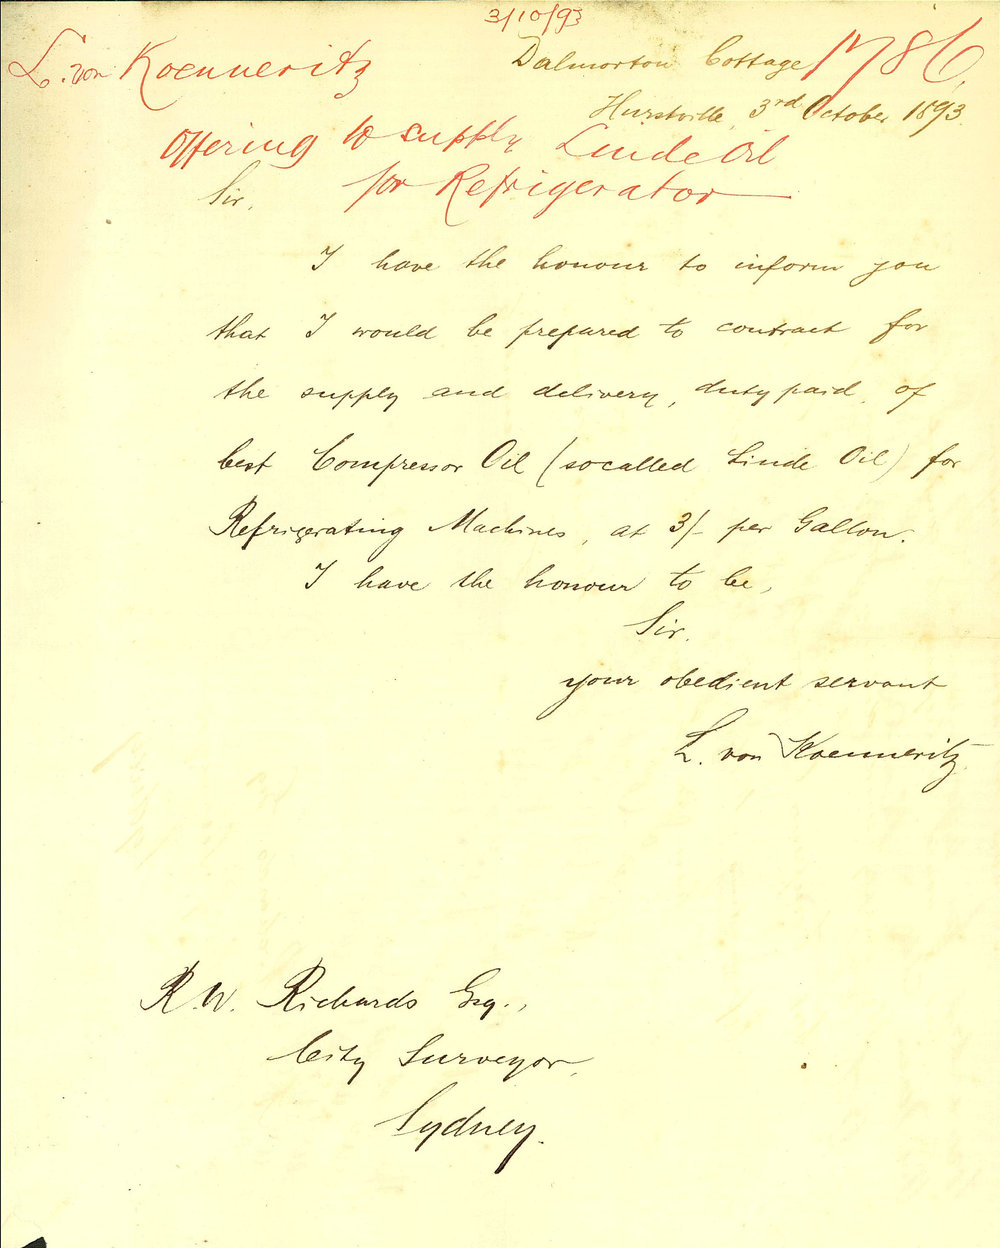 3/10/93
L. von Koenneritz
Dalmorton Cottage
1786
Hurstville, 3rd October 1893.
Offering to supply Linde Oil
for Refrigerator
Sir,
I have the honour to inform you
that I would be prepared to contract for
the supply and delivery, duty paid, of
best Compressor Oil (socalled Linde Oil) for
Refrigerating Machines, at 3/- per Gallon.
I have the honour to be,
Sir,
your obedient servant
L. von Koenneritz.
R. W. Richards Esq.,
City Surveyor,
Sydney.